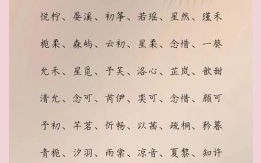 悦柠、晏溪、初筝、若瑶、星然、槿禾
栀柔、森屿、云初、星柔、念惜、一葵
允禾、星觅、予芙、洛心、芷岚、歆甜
清允、念可、芮伊、奕可、念惜、颜可
予初、芊茗、忻畅、以茜、疏桐、矜暮
青栀、汐羽、雨棠、凉音、夏黎、知许